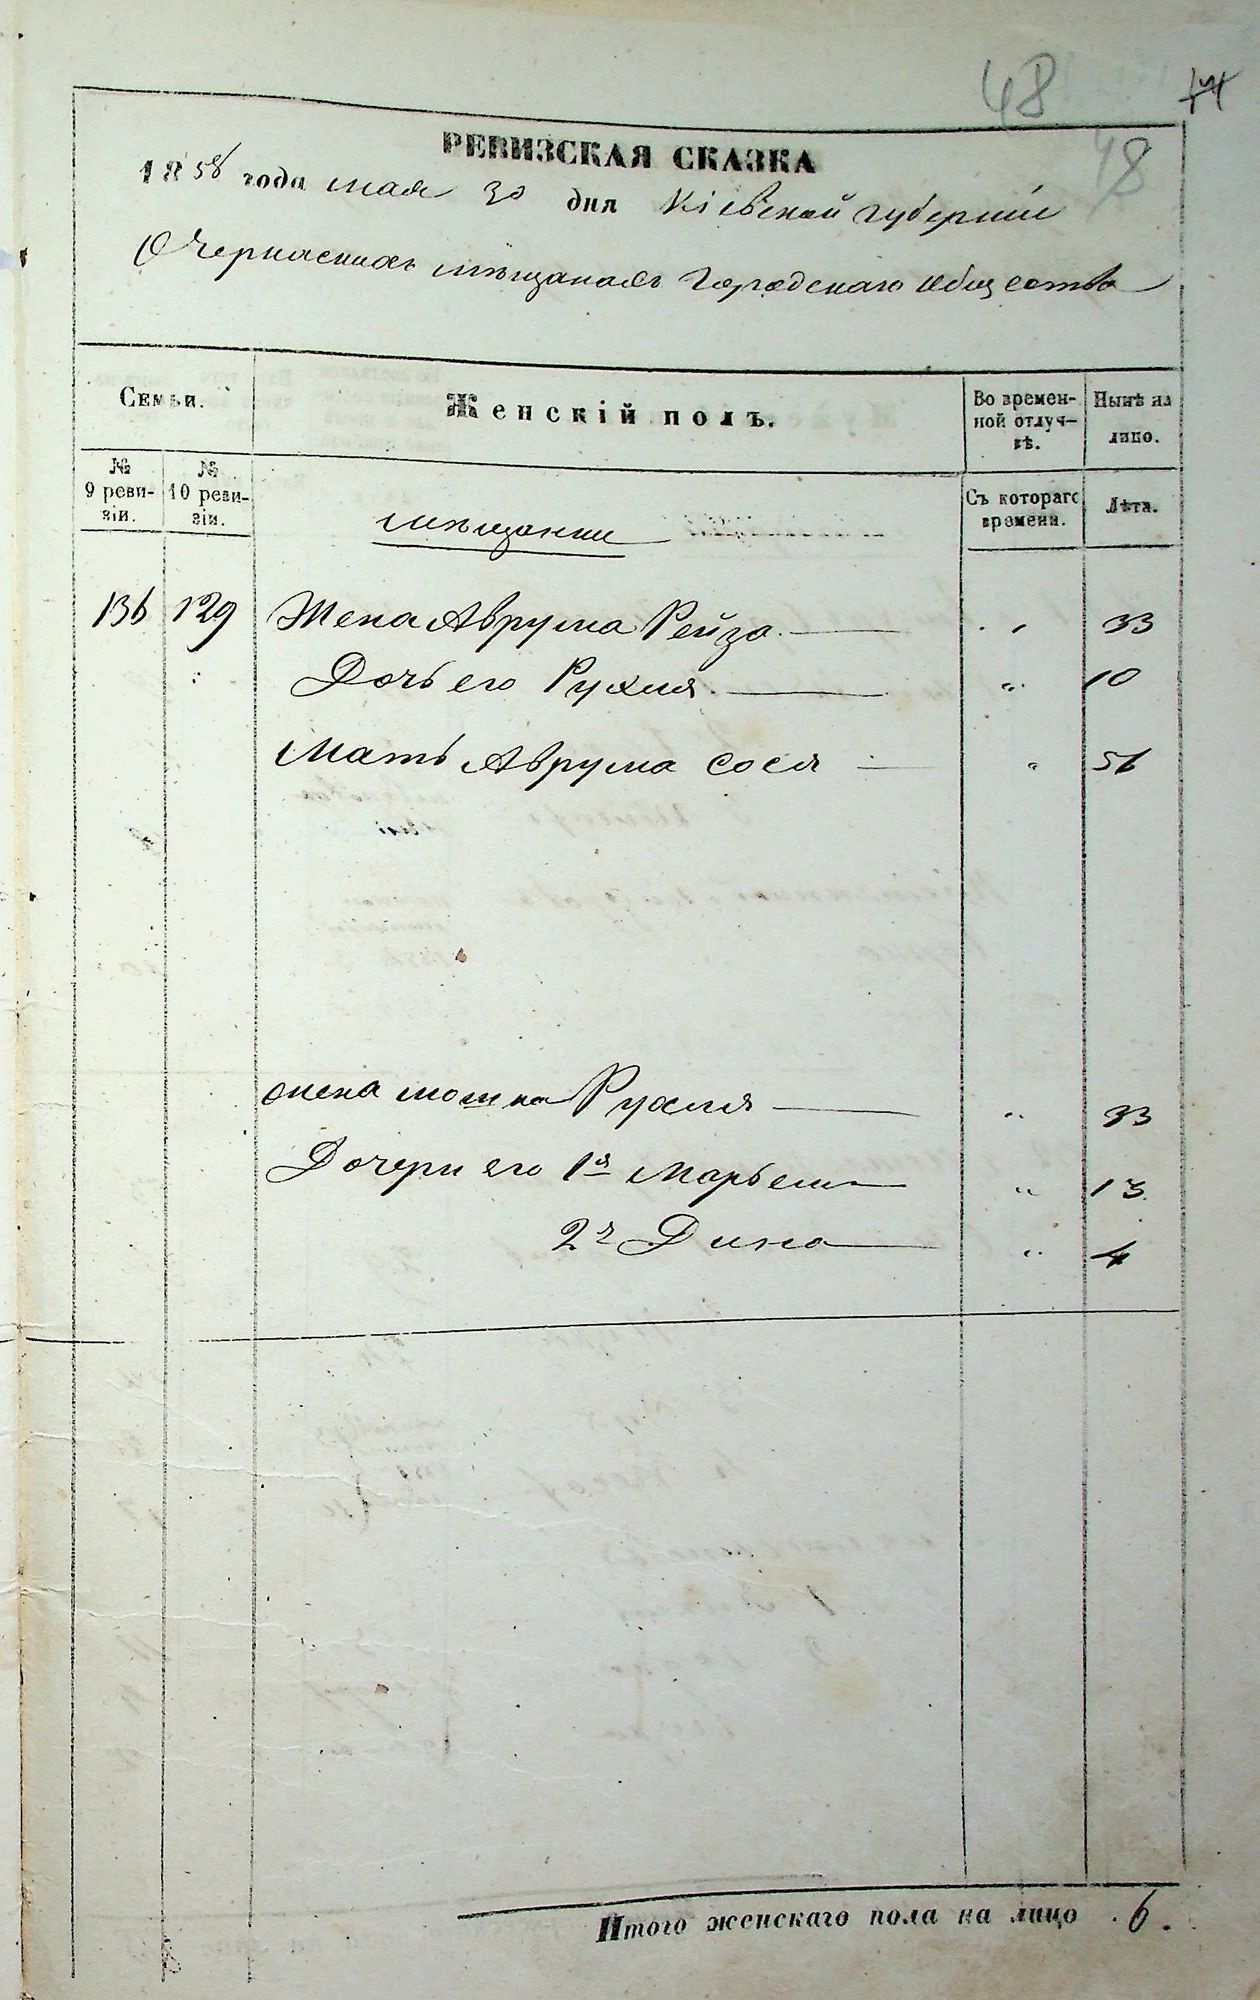 48
48
РЕВИЗСКАЯ СКАЗКА
1858 года мая 30 дня Кіевской губерніи
О Черкаскихъ мѣщанахъ Городскаго общества
Семьи.
Женскій полъ.
Во времен-
ной отлуч-
кѣ.
Нынѣ на
лицо.
№
9 реви-
зіи.
№
10 реви-
зіи.
Съ котораго
времени.
Лѣта.
мѣщанки
136 129 Жена Аврума Рейза " 33
Дочь его Рухля " 10
Мать Аврума Сося " 56
жена Мошка Рухля " 33
Дочери его 1я Марьем " 13
2я Дина " 4
Итого женскаго пола на лицо 6.